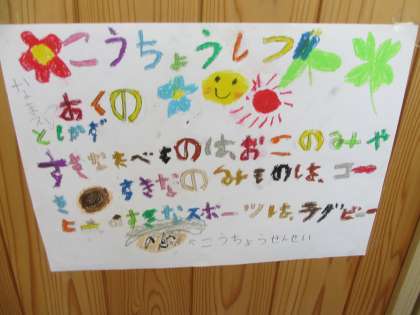 こうちょうしつ
なまえ
おくの
としかず
すきなたべものは、おこのみや
き すきなのみものは、コー
ヒー すきなスポーツは、ラグビー
こうちょうせんせい